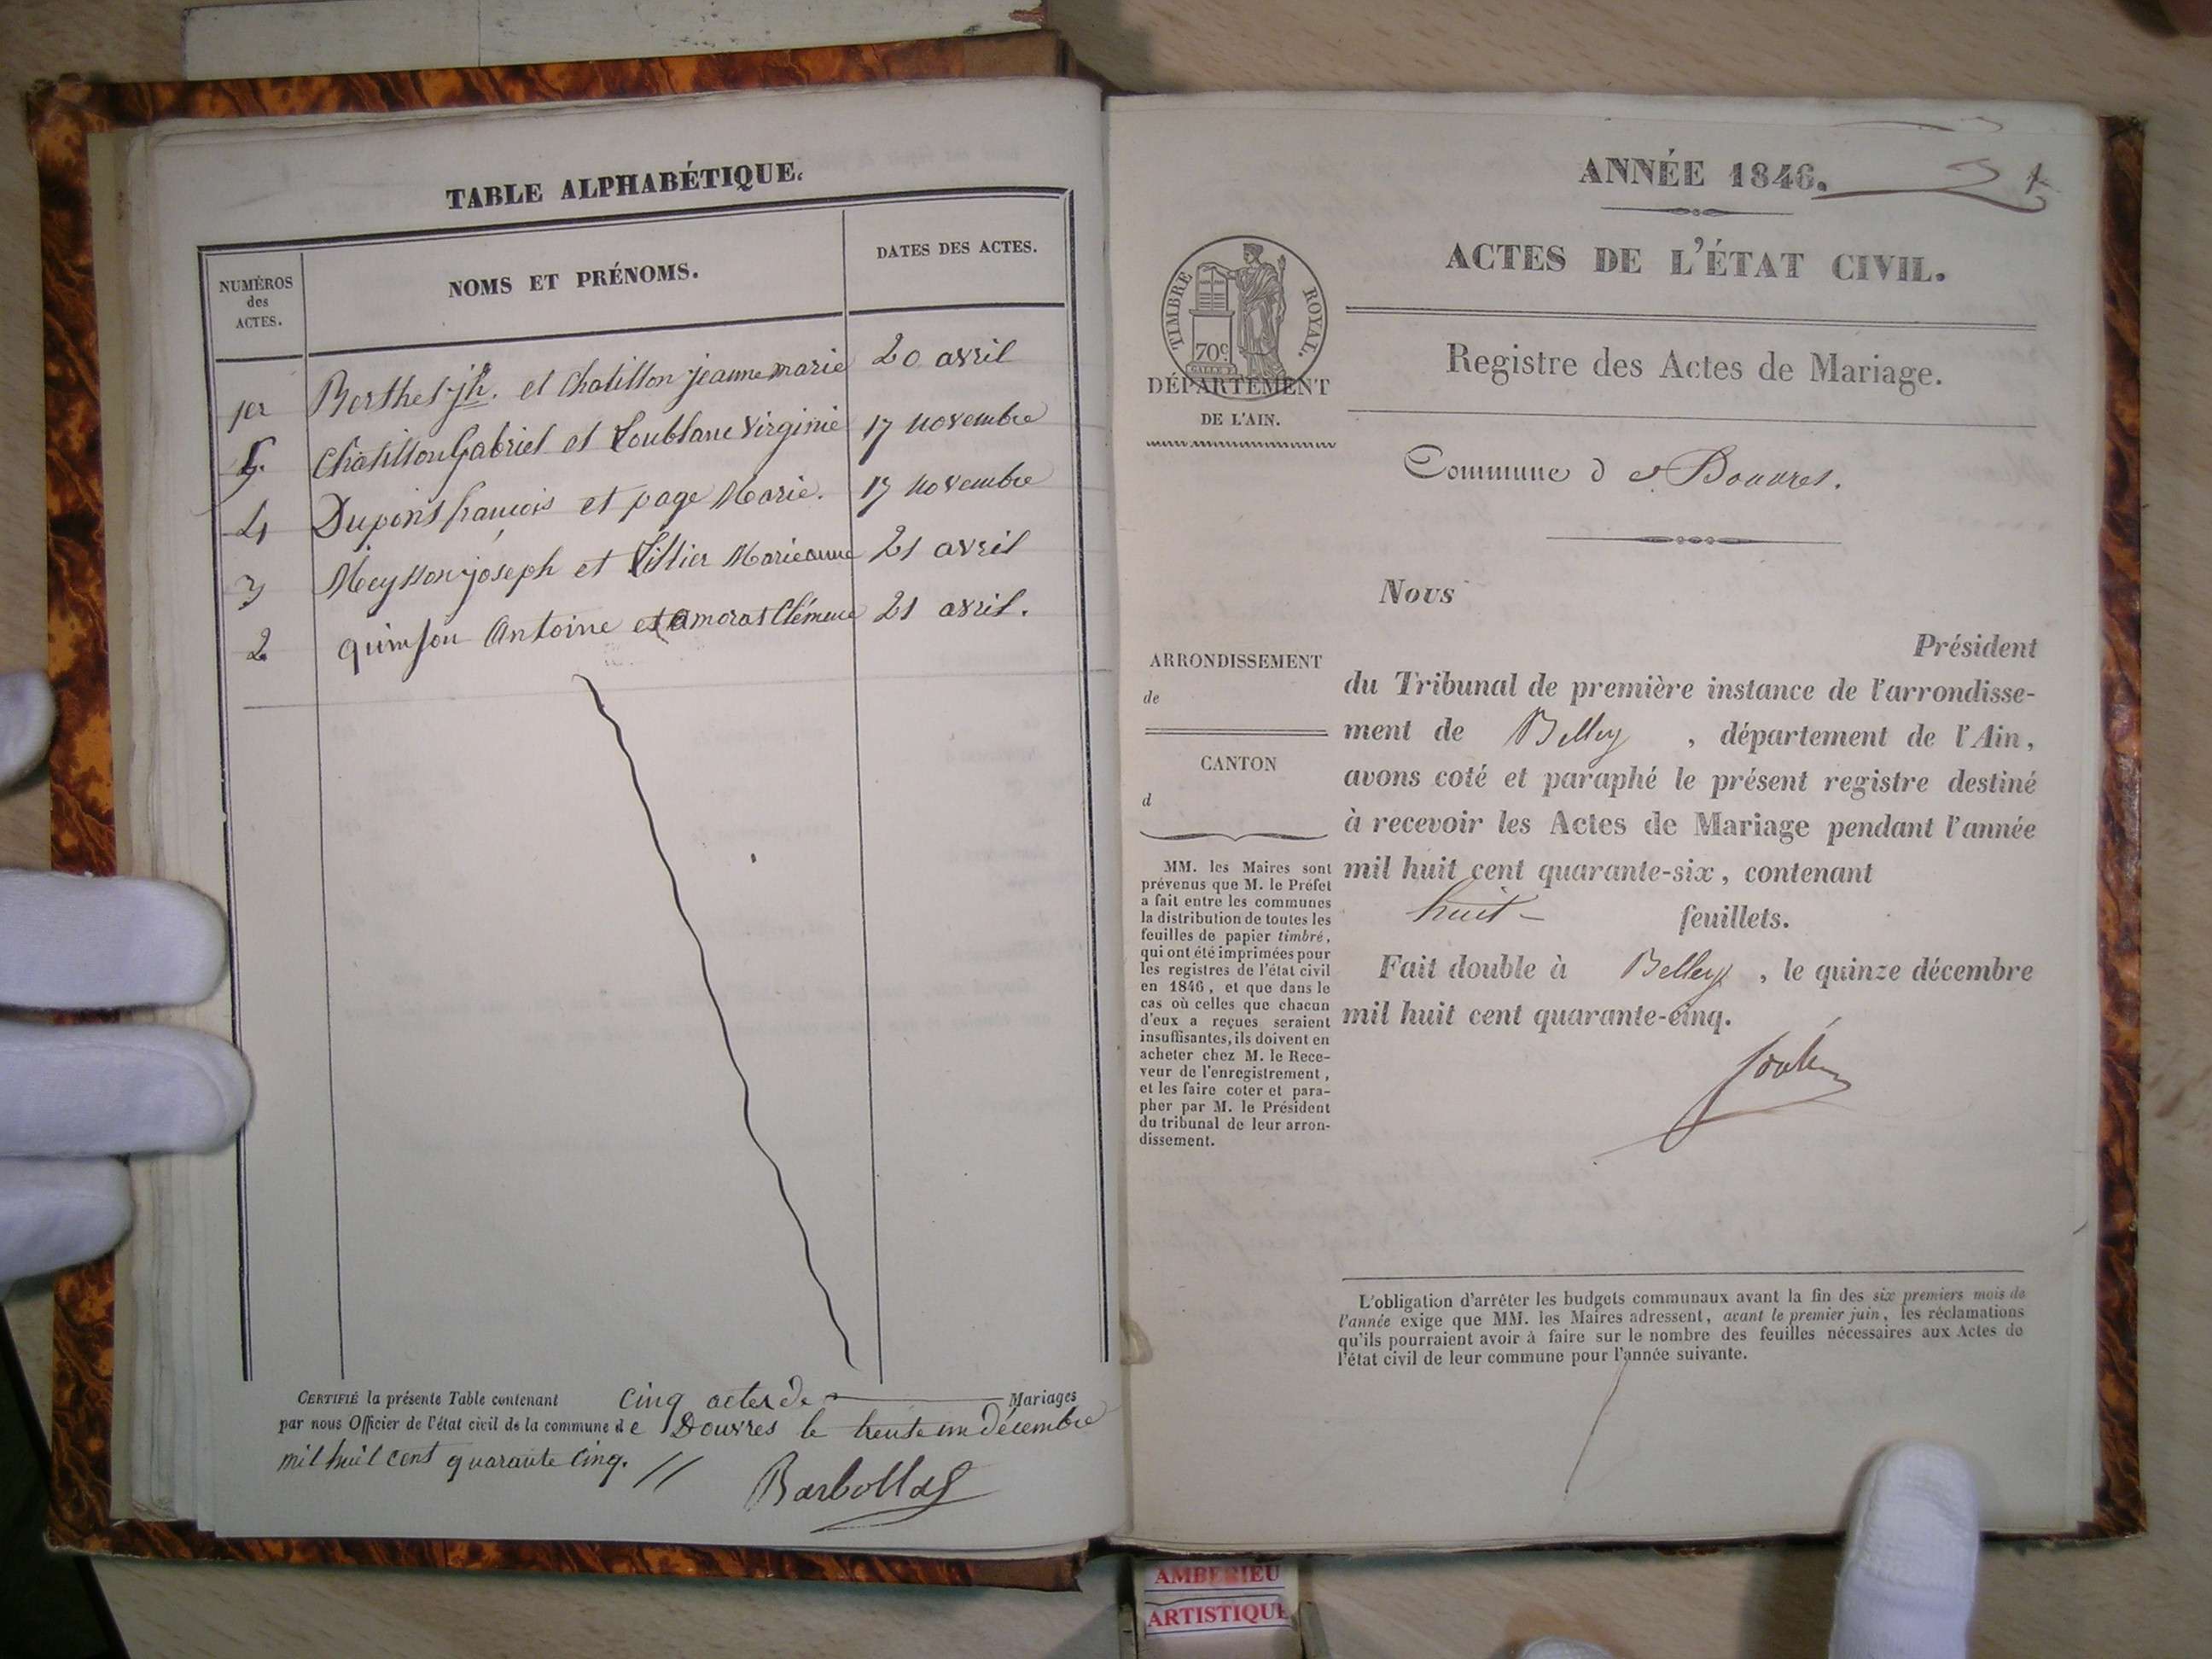 TABLE ALPHABÉTIQUE.
NUMÉROS
des
ACTES.
NOMS ET PRÉNOMS.
DATES DES ACTES.
1er Berthet jh. et Chatillon jeanne marie 20 avril
5. Chatillon Gabriel et Loublanc Virginie 17 novembre
4 Dupont françois et page Marie. 17 novembre
3 joseph et Tillier Marieanne 21 avril
2 quinson Antoine et amorat Clémence 21 avril.
CERTIFIÉ la présente Table contenant cinq actes de Mariages
par nous Officier de l'état civil de la commune de Douvres le trente un décembre
mil huit cent quarante cinq. //
Barbollat
ANNÉE 1846.
ACTES DE L'ÉTAT CIVIL.
TIMBRE ROYAL.
70c
DÉPARTEMENT
DE L'AIN.
Registre des Actes de Mariage.
Commune de Douvres.
Nous
Président
du Tribunal de première instance de l'arrondisse-
ment de Belley , département de l'Ain,
avons coté et paraphé le présent registre destiné
à recevoir les Actes de Mariage pendant l'année
mil huit cent quarante-six, contenant
huit feuillets.
Fait double à Belley , le quinze décembre
mil huit cent quarante-cinq.
ARRONDISSEMENT
de
CANTON
d
MM. les Maires sont
prévenus que M. le Préfet
a fait entre les communes
la distribution de toutes les
feuilles de papier timbré,
qui ont été imprimées pour
les registres de l'état civil
en 1846, et que dans le
cas où celles que chacun
d'eux a reçues seraient
insuffisantes, ils doivent en
acheter chez M. le Rece-
veur de l'enregistrement,
et les faire coter et para-
pher par M. le Président
du tribunal de leur arron-
dissement.
L'obligation d'arrêter les budgets communaux avant la fin des six premiers mois de
l'année exige que MM. les Maires adressent, avant le premier juin, les réclamations
qu'ils pourraient avoir à faire sur le nombre des feuilles nécessaires aux Actes de
l'état civil de leur commune pour l'année suivante.
AMBERIEU
ARTISTIQUE